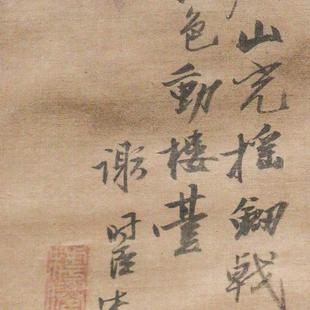 山光搖劒戟
色動樓臺
謝時臣